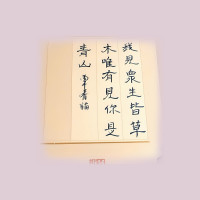 我見眾生皆草
木唯有見你是
青山